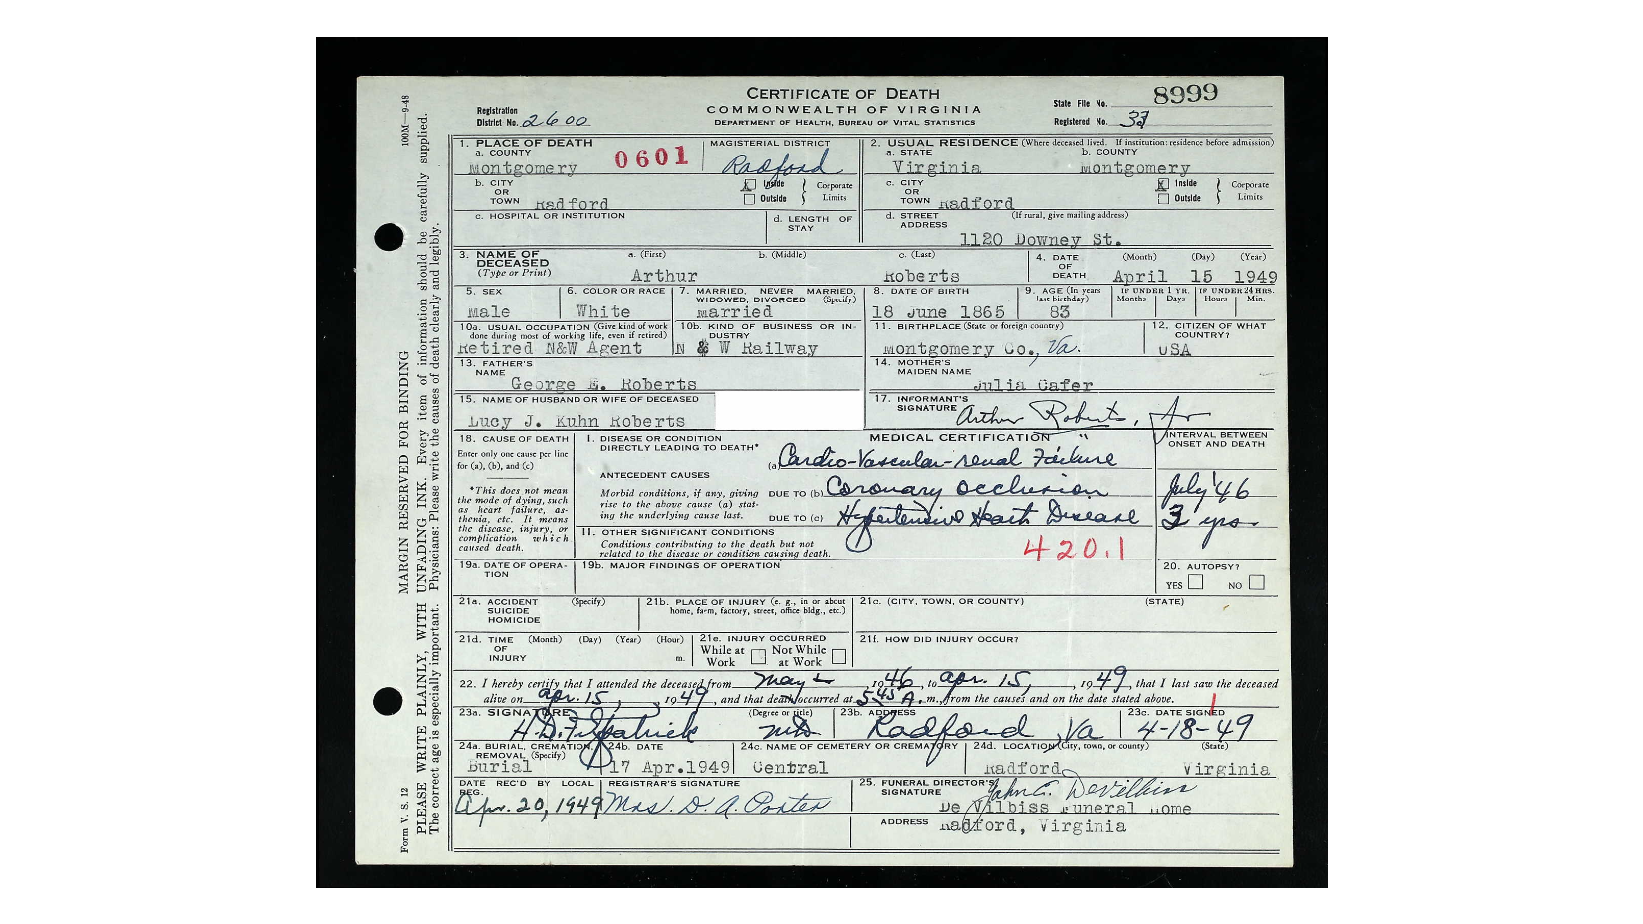 CERTIFICATE OF DEATH
COMMONWEALTH OF VIRGINIA
DEPARTMENT OF HEALTH, BUREAU OF VITAL STATISTICS
Registration District No. 2600
State File No. 8999
Registered No. 37
100M—9-48
MARGIN RESERVED FOR BINDING
PLEASE WRITE PLAINLY, WITH UNFADING INK. Every item of information should be carefully supplied.
The correct age is especially important. Physicians: Please write the causes of death clearly and legibly.
Form V. S. 12
1. PLACE OF DEATH
a. COUNTY
Montgomery
0601
MAGISTERIAL DISTRICT
Radford
b. CITY OR TOWN Radford
X Inside
Outside
Corporate Limits
c. HOSPITAL OR INSTITUTION
d. LENGTH OF STAY
2. USUAL RESIDENCE (Where deceased lived. If institution: residence before admission)
a. STATE
Virginia
b. COUNTY
Montgomery
c. CITY OR TOWN Radford
X Inside
Outside
Corporate Limits
d. STREET ADDRESS (If rural, give mailing address)
1120 Downey St.
3. NAME OF DECEASED (Type or Print)
a. (First) Arthur
b. (Middle)
c. (Last) Roberts
4. DATE OF DEATH
(Month) (Day) (Year)
April 15 1949
5. SEX
Male
6. COLOR OR RACE
White
7. MARRIED, NEVER MARRIED, WIDOWED, DIVORCED (Specify)
Married
8. DATE OF BIRTH
18 June 1865
9. AGE (In years last birthday)
83
IF UNDER 1 YR. Months Days
IF UNDER 24 HRS. Hours Min.
10a. USUAL OCCUPATION (Give kind of work done during most of working life, even if retired)
Retired N&W Agent
10b. KIND OF BUSINESS OR INDUSTRY
N & W Railway
11. BIRTHPLACE (State or foreign country)
Montgomery Co., Va.
12. CITIZEN OF WHAT COUNTRY?
USA
13. FATHER'S NAME
George E. Roberts
14. MOTHER'S MAIDEN NAME
Julia Cafer
15. NAME OF HUSBAND OR WIFE OF DECEASED
Lucy J. Kuhn Roberts
17. INFORMANT'S SIGNATURE Arthur Roberts, Jr
18. CAUSE OF DEATH
Enter only one cause per line for (a), (b), and (c)
*This does not mean the mode of dying, such as heart failure, asthenia, etc. It means the disease, injury, or complication which caused death.
MEDICAL CERTIFICATION
I. DISEASE OR CONDITION DIRECTLY LEADING TO DEATH*
(a) Cardio-Vascular-renal Failure
ANTECEDENT CAUSES
Morbid conditions, if any, giving rise to the above cause (a) stating the underlying cause last.
DUE TO (b) Coronary occlusion
DUE TO (c) Hypertensive Heart Disease
INTERVAL BETWEEN ONSET AND DEATH
July '46
3 yrs.
II. OTHER SIGNIFICANT CONDITIONS
Conditions contributing to the death but not related to the disease or condition causing death.
420.1
19a. DATE OF OPERATION
19b. MAJOR FINDINGS OF OPERATION
20. AUTOPSY?
YES NO
21a. ACCIDENT SUICIDE HOMICIDE (Specify)
21b. PLACE OF INJURY (e. g., in or about home, farm, factory, street, office bldg., etc.)
21c. (CITY, TOWN, OR COUNTY) (STATE)
21d. TIME OF INJURY (Month) (Day) (Year) (Hour) m.
21e. INJURY OCCURRED
While at Work
Not While at Work
21f. HOW DID INJURY OCCUR?
22. I hereby certify that I attended the deceased from May 1946, to Apr. 15, 1949, that I last saw the deceased
alive on Apr. 15, 1949, and that death occurred at 5:45 A.m., from the causes and on the date stated above.
23a. SIGNATURE (Degree or title)
H.D. Fitzpatrick MD
23b. ADDRESS
Radford Va
23c. DATE SIGNED
4-18-49
24a. BURIAL, CREMATION, REMOVAL (Specify)
Burial
24b. DATE
17 Apr.1949
24c. NAME OF CEMETERY OR CREMATORY
Central
24d. LOCATION (City, town, or county) (State)
Radford, Virginia
DATE REC'D BY LOCAL REG.
Apr. 20, 1949
REGISTRAR'S SIGNATURE
Mrs. D. A. Porter
25. FUNERAL DIRECTOR'S SIGNATURE John C. DeVilbiss
De Vilbiss Funeral Home
ADDRESS Radford, Virginia